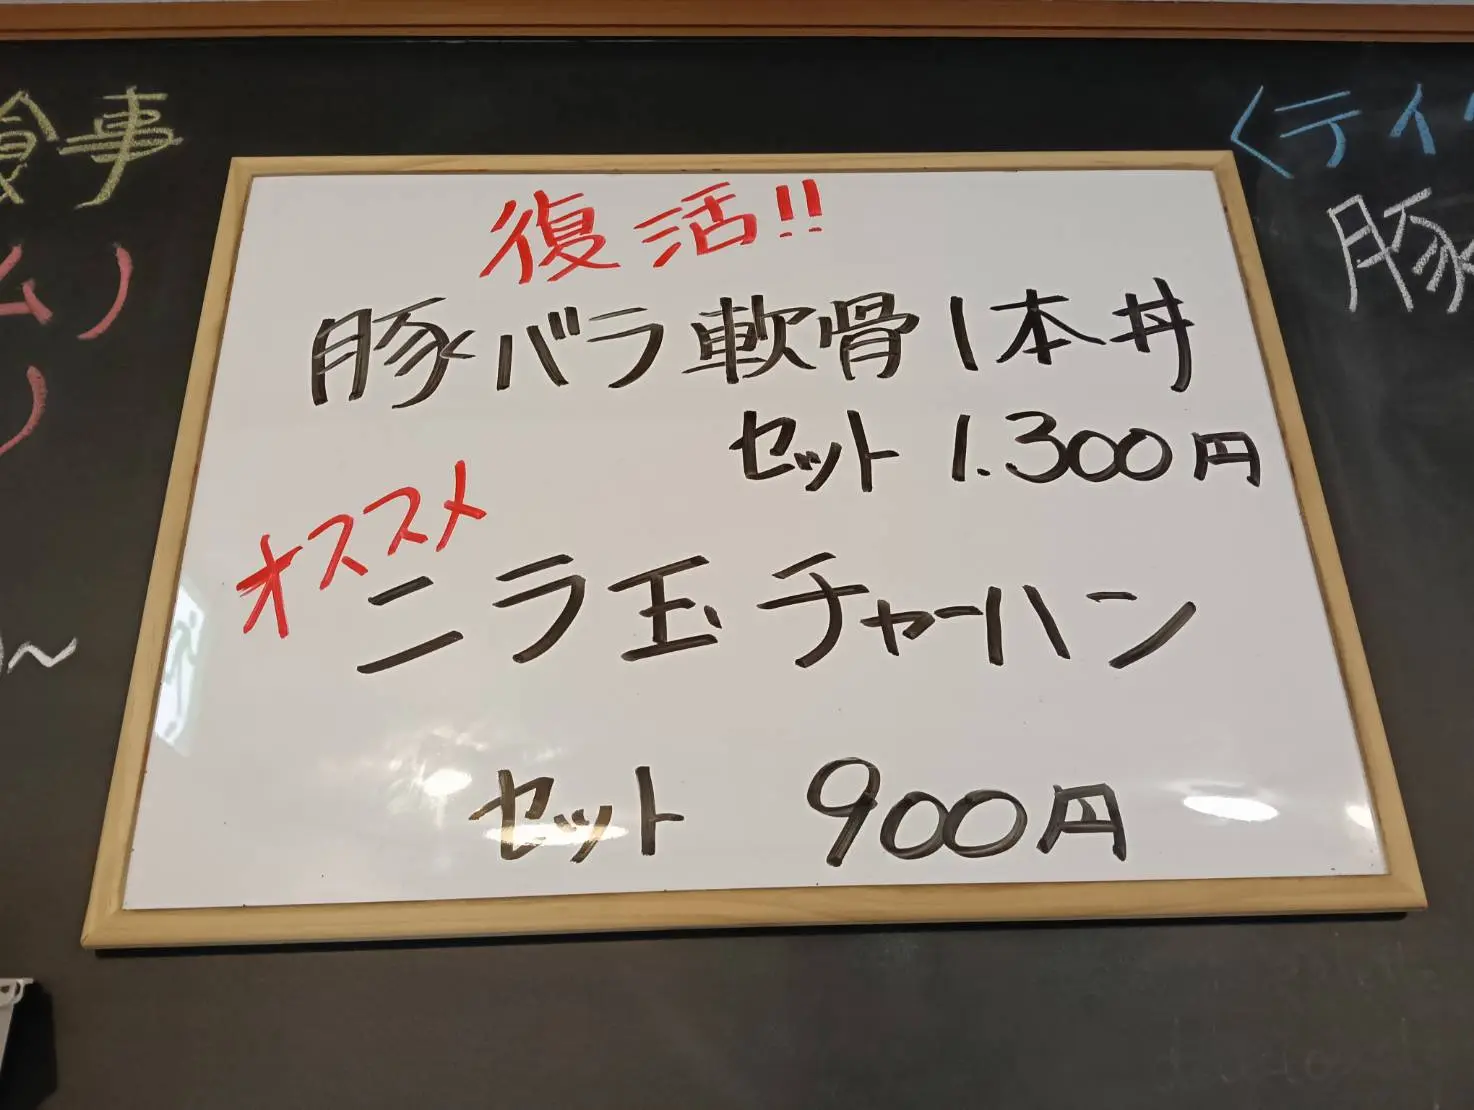 食事
復活!!
豚バラ軟骨1本丼
セット 1.300円
オススメ
ニラ玉チャーハン
セット 900円
<テイ
豚